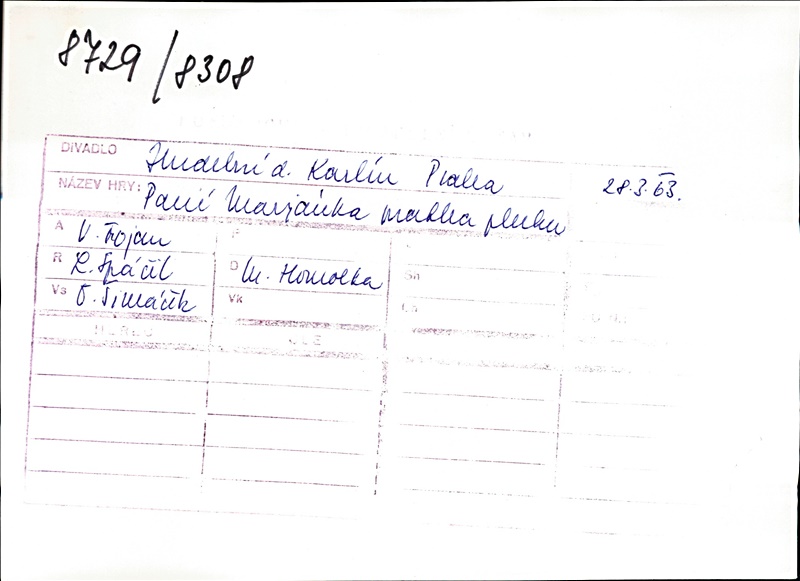 8729/8308
DIVADLO Hudební d. Karlín Praha 28.3.63.
NÁZEV HRY: Paní Marjánka matka pluku
A V. Trojan
R L. Špáčil D M. Homolka Sn
Vs O. Šimáček Vk Ch
HEREC